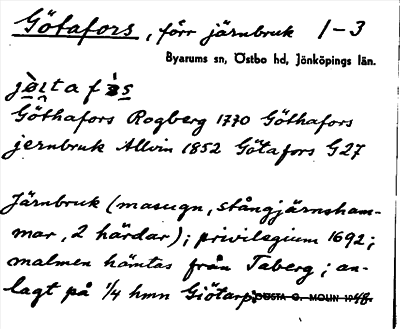 Götafors, förr järnbruk 1-3
Byarums sn, Östbo hd, Jönköpings län.
Göthafors Rogberg 1770 Göthafors
jernbruk Allvin 1852 Götafors G27
Järnbruk (masugn, stångjärnsham-
mar, 2 härdar); privilegium 1692;
malmen hämtas från Taberg; an-
lagt på 1/4 hmn Giötarp.